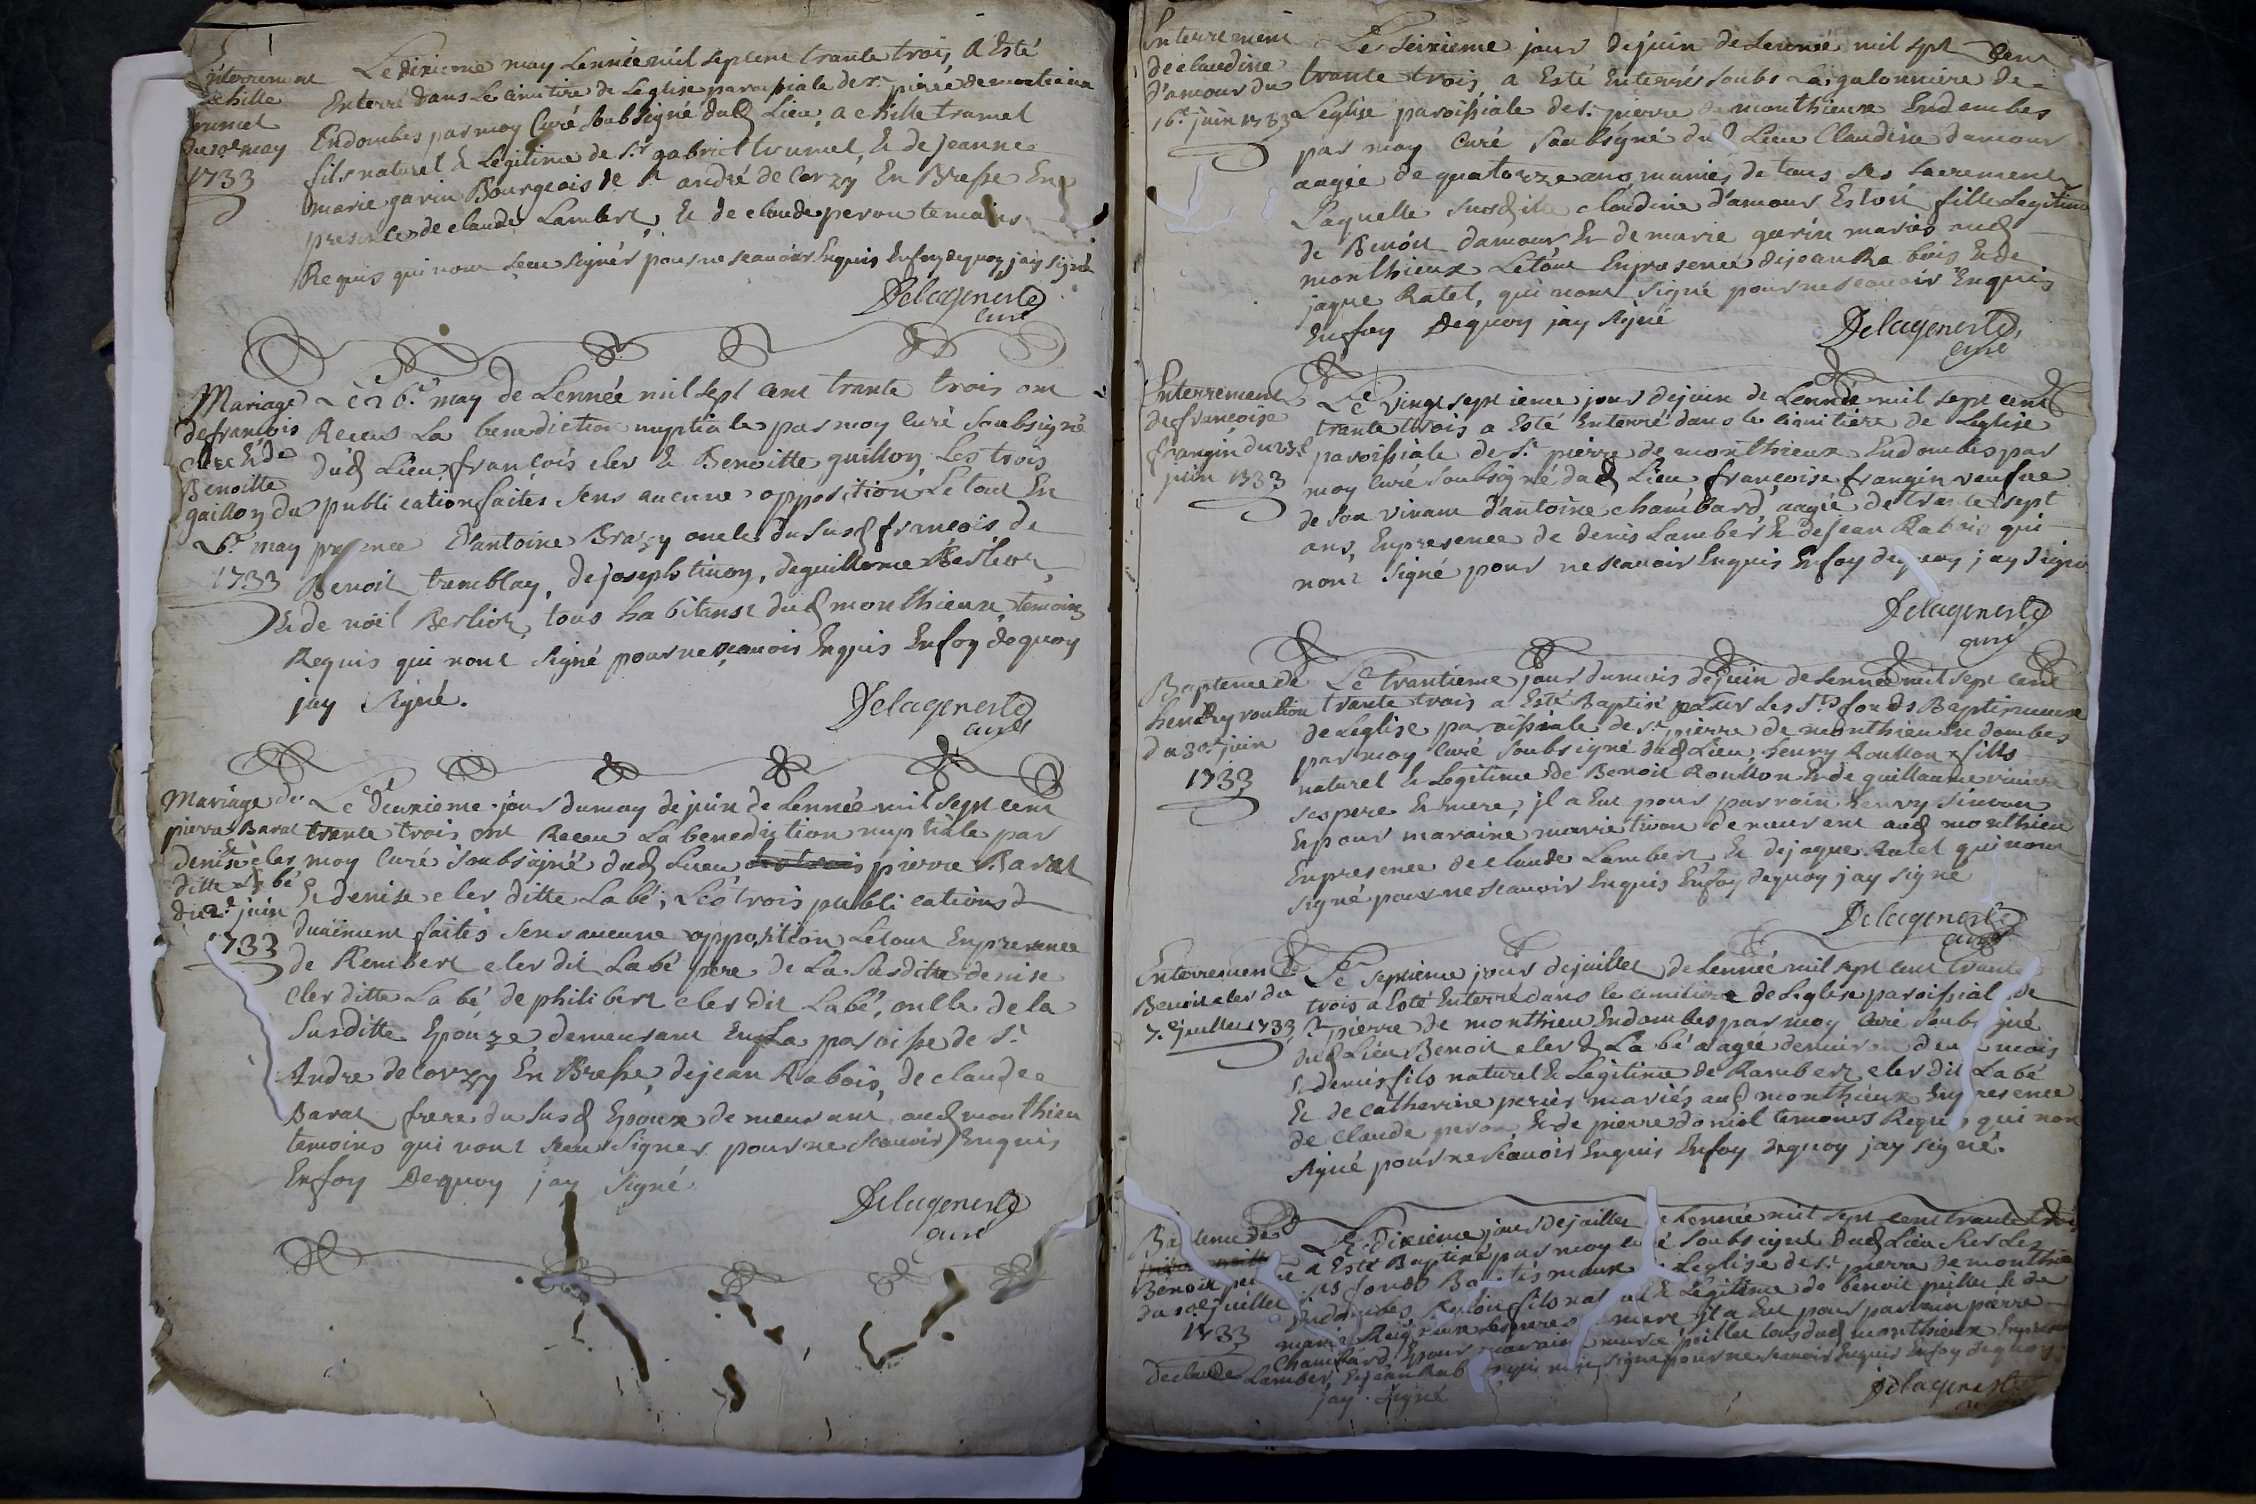 Enterrement
achille
trumel
du 10e may
1733
Le dixieme may Lennée mil sept cent trante trois, a Esté
Enterré dans Le cimitire de Leglise paroissiale de st. pierre de montieux
Endombes par moy Curé Soubsigné dud Lieu, achille trumel
fils naturel & Legitime de sr. gabriel trumel, & de jeanne
marie garin Bourgeois de st andré de Corzy En Bresse En
presence de claude Lambert, & de claude peron temoins
Requis qui nont sceu signer pour ne scauoir Enquis Enfoy dequoy jay signé
Delageneste
curé
Mariage
de françois
cler & de
Benoitte
guillon du
26e may
1733
Le 26e may de Lennée mil sept cent trante trois ont
Receus La benediction nuptiale par moy curé Soubsigné
dud Lieu, françois cler & Benoitte guillon, Les trois
publications faites sens aucune opposition, Le tout En
presence d'antoine Brazy oncle du susd françois, de
Benoit tremblay, de joseph tivon, de guillaume Berlior,
& de noël Berlior, tous habitants dud monthieux, temoins
Requis qui nont signé pour ne scauoir Enquis Enfoy dequoy
jay signé.
Delageneste
curé
Mariage de
pierre Barat
& denise cler
ditte Labé
du 2e juin
1733
Le deuxieme jour du moy de juin de Lennée mil sept cent
trante trois ont Receu La benediction nuptiale par
moy Curé soubsigné dud Lieu pierre Barat
& denise cler ditte Labé, Les trois publications
duëment faites sens aucune opposition Le tout En presence
de Rembert cler dit Labé pere de La susditte denise
cler ditte Labé, de philibert cler dit Labé, oncle de la
susditte Epouze demeurant En La paroisse de st.
Andre de Corzy En Bresse, de jean Rabois, de claude
Barat frere du susd Epoux demeurant aud monthieu
temoins qui nont sceu signer pour ne scauoir Enquis
Enfoy Dequoy jay signé
Delageneste
curé
Enterrement
de claudine
d'amour du
16e juin 1733
Le seizieme jour de juin de Lennée mil sept cent
trante trois, a Esté Enterrée soubs La galonniere de
Leglise paroissiale de st. pierre de monthieux Endombes
par moy Curé soubsigné dud Lieu Claudine damour
aagée de quatorze ans munies de tous ses sacrements
Laquelle susditte claudine d'amour Estoit fille Legitime
de Benoit damour & de marie garin mariés aud
monthieux Le tout En presence de jean Rabois & de
jaque Ratel, qui nont signé pour ne scauoir Enquis
Enfoy Dequoy jay signé
Delageneste
curé
Enterrement
de françoise
frangin du 27e
juin 1733
Le vingt septieme jour de juin de Lennée mil sept cent
trante trois a Esté Enterré dans le cimitiere de Leglise
paroissiale de st. pierre de monthieux Endombes par
moy Curé soubsigné dud Lieu françoise frangin veufue
de son viuant d'antoine chambard, aagée de trante sept
ans, En presence de denis Lambert & de jean Rabois qui
nont signé pour ne scauoir Enquis Enfoy dequoy jay signé
Delageneste
curé
Bapteme de
henry roullion
du 30e juin
1733
Le trantieme jour du mois de juin de Lennée mil sept cent
trante trois a Esté Baptisé sur Les sts fonds Baptismaux
de Leglise paroissiale de st. pierre de monthieu Endombes
par moy Curé soubsigné dud Lieu, henry Roullon fils
naturel & Legitime de Benoit Roullon & de guillaume
ses pere & mere, jl a Eut pour parrain henry Simon
Et pour maraine marie tivon demeurant aud monthieu
En presence de claude Lambert & de jaque Ratel qui nont
signé pour ne scauoir Enquis Enfoy dequoy jay signé
Delageneste
curé
Enterrement de
Benoit cler du
7e juillet 1733
Le septieme jour de juillet de Lennée mil sept cent trante
trois a Esté Enterré dans le cimitiere de Leglise paroissiale de
st. pierre de monthieu Endombes par moy Curé soubsigné
dud Lieu Benoit cler d Labé aagée denuiron deux mois
& demis fils naturel & Legitime de Rambert cler dit Labé
& de catherine perier mariés aud monthieux En presence
de claude peron & de pierre doniol temoins Requis, qui nont
signé pour ne scauoir Enquis Enfoy dequoy jay signé.
Bapteme de
Benoit
du 10e juillet
1733
Le dixieme jour de juillet de Lennée mil sept cent trante trois
a Esté Baptisé par moy curé soubsigné dud Lieu sur Les
sts fonds Baptismaux de Leglise de st. pierre de monthieu
Endombes fils naturel & Legitime de benoit & de
marie ses pere & mere jl a Eut pour parrain pierre
Chambard, & pour maraine tous dud monthieux En presence
de claude Lambert & jean Rabois qui nont signé pour ne scauoir Enquis Enfoy dequoy
jay signé
Delageneste